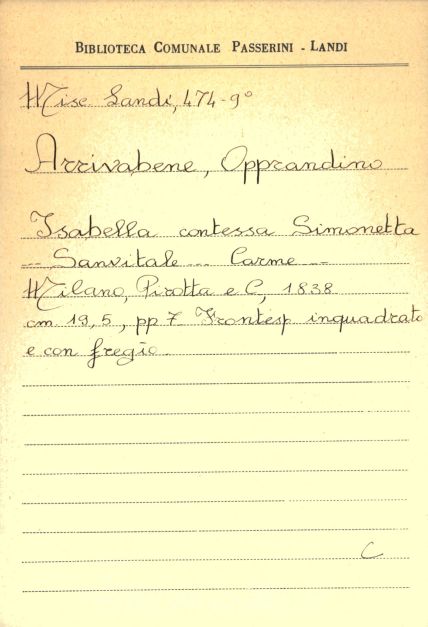 BIBLIOTECA COMUNALE PASSERINI - LANDI
Misc Landi, 474-9°
Arrivabene, Opprandino
Isabella contessa Simonetta
-- Sanvitale -- Carme --
Milano, Pirotta e C, 1838
cm 19,5, pp 7 Frontesp inquadrato
e con fregio
C